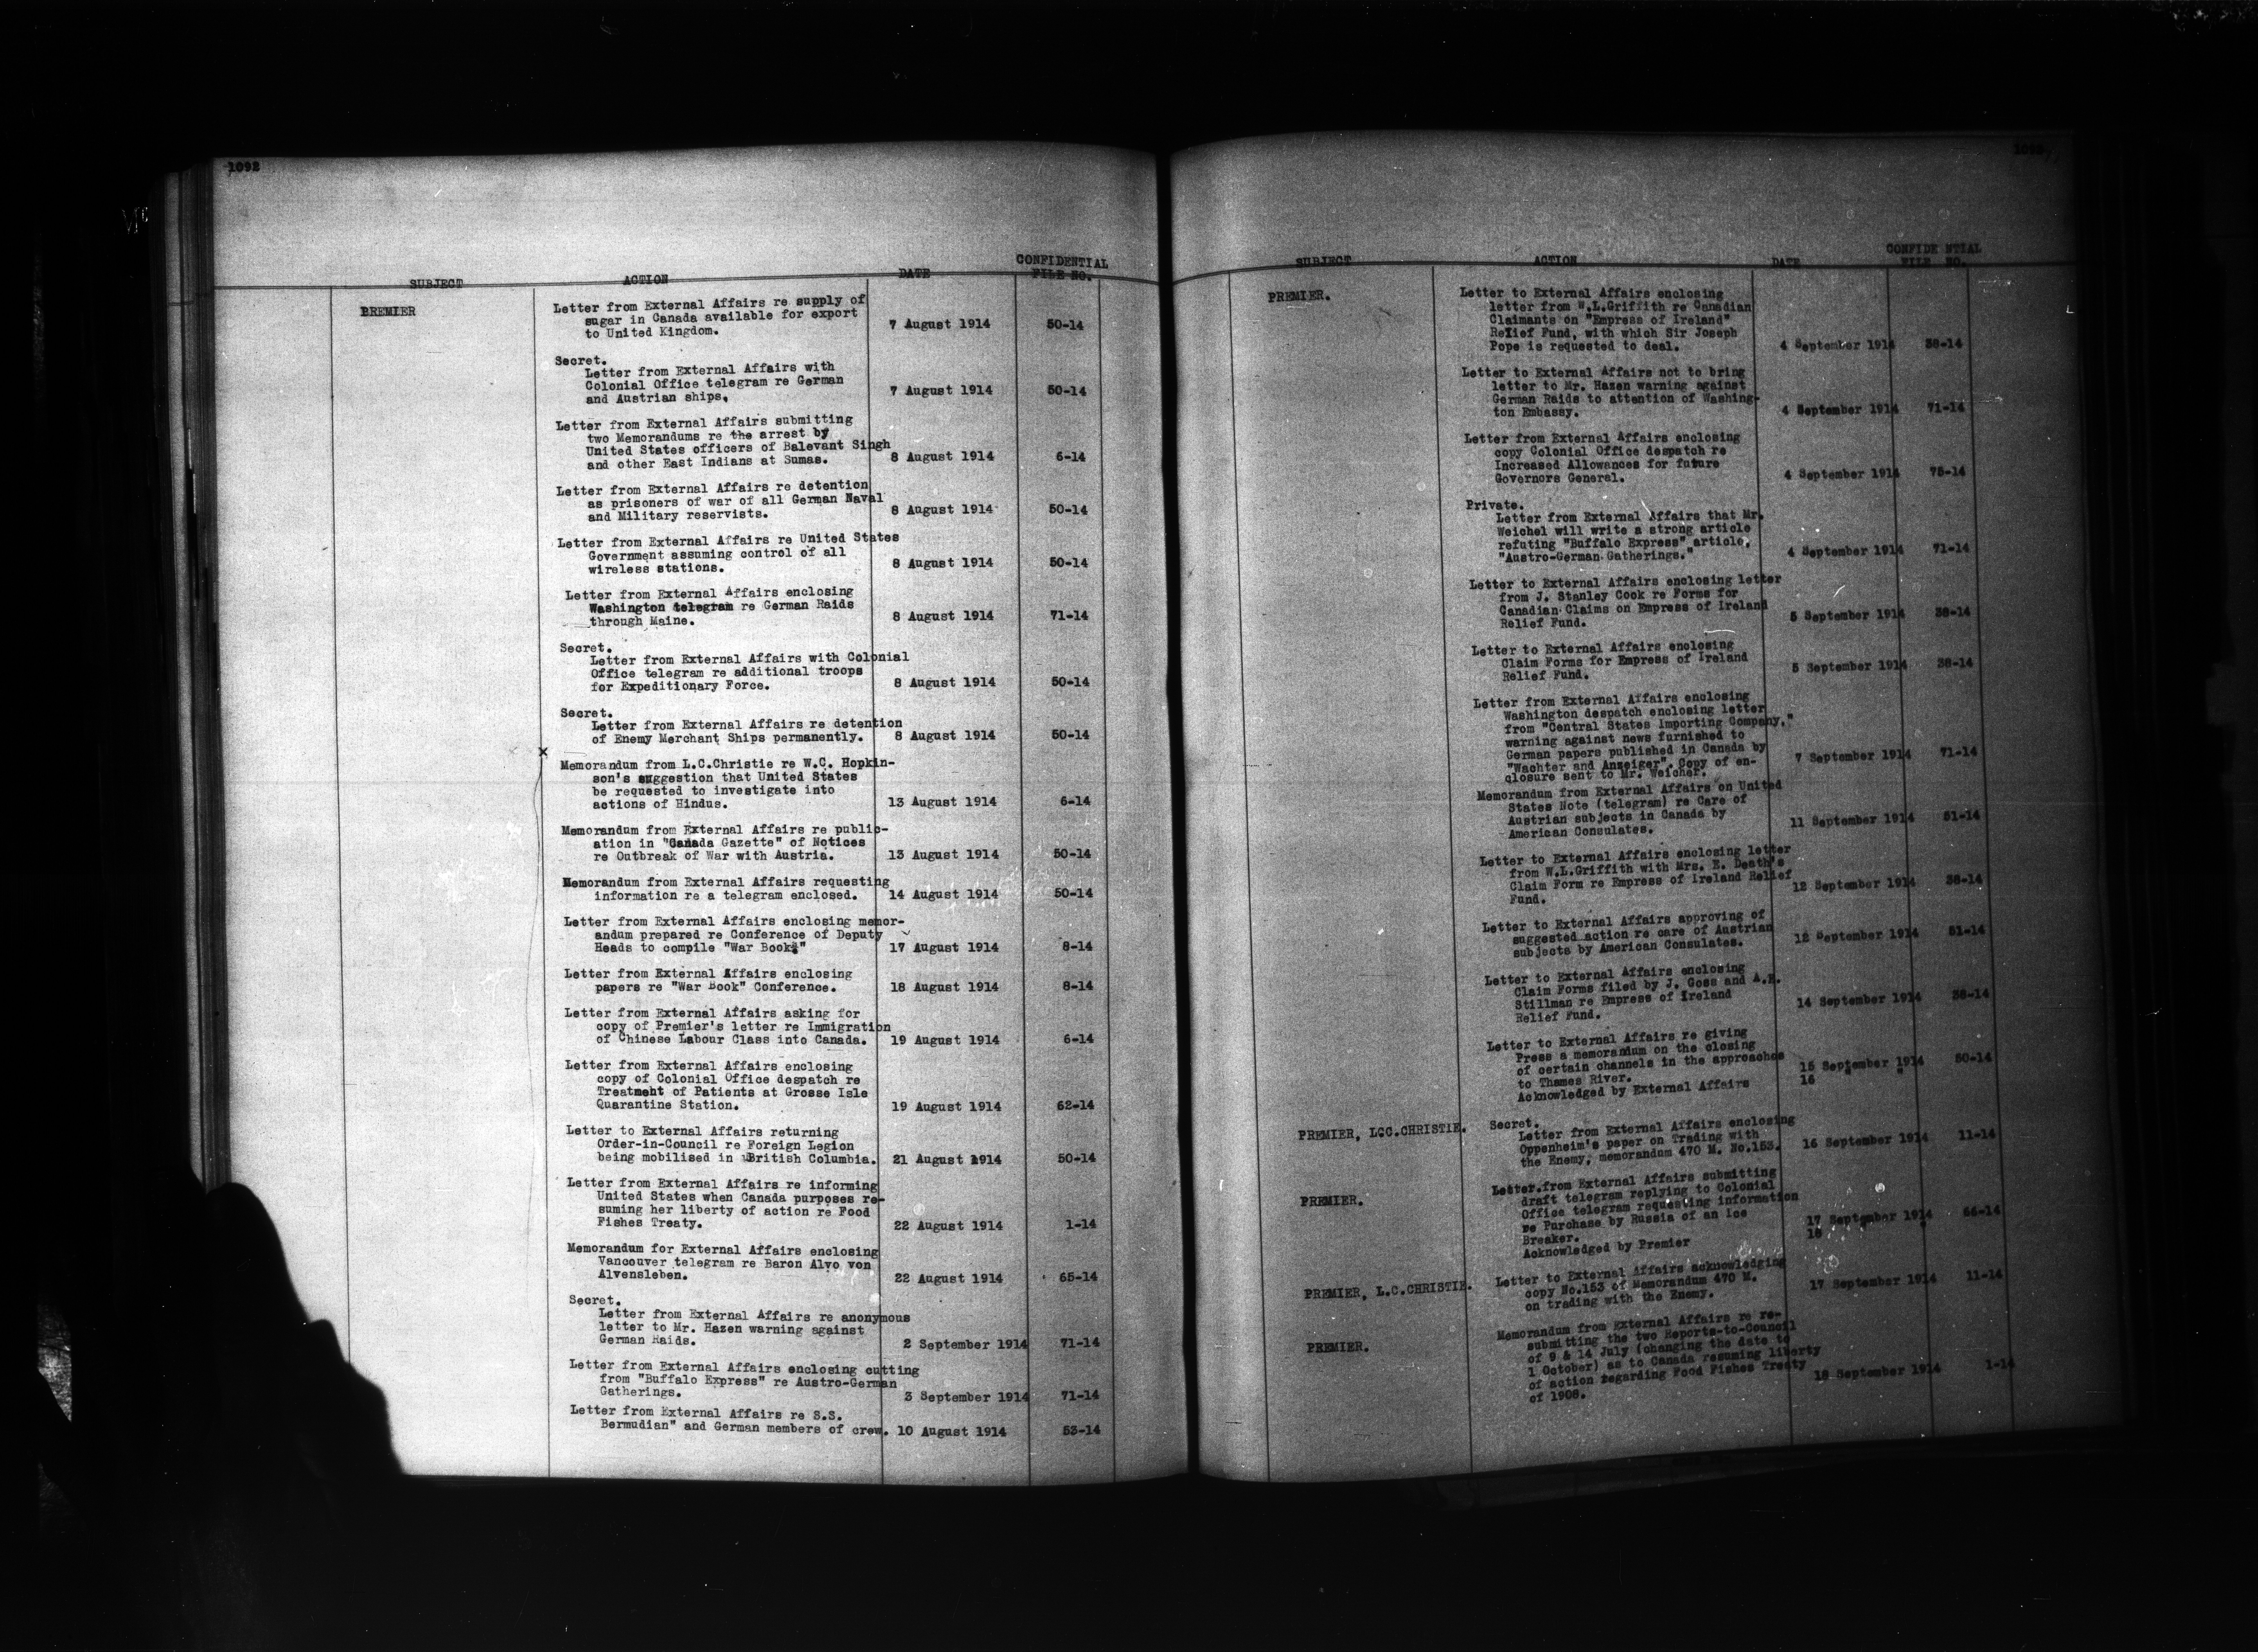 1092
SUBJECT ACTION DATE CONFIDENTIAL
FILE NO.
PREMIER
Letter from External Affairs re supply of
sugar in Canada available for export
to United Kingdom. 7 August 1914 50-14
Secret.
Letter from External Affairs with
Colonial Office telegram re German
and Austrian ships. 7 August 1914 50-14
Letter from External Affairs submitting
two Memorandums re the arrest by
United States officers of Balevant Singh
and other East Indians at Sumas. 8 August 1914 6-14
Letter from External Affairs re detention
as prisoners of war of all German Naval
and Military reservists. 8 August 1914 50-14
Letter from External Affairs re United States
Government assuming control of all
wireless stations. 8 August 1914 50-14
Letter from External Affairs enclosing
Washington telegram re German Raids
through Maine. 8 August 1914 71-14
Secret.
Letter from External Affairs with Colonial
Office telegram re additional troops
for Expeditionary Force. 8 August 1914 50-14
Secret.
Letter from External Affairs re detention
of Enemy Merchant Ships permanently. 8 August 1914 50-14
x
Memorandum from L.C.Christie re W.C. Hopkin-
son's suggestion that United States
be requested to investigate into
actions of Hindus. 13 August 1914 6-14
Memorandum from External Affairs re public-
ation in "Canada Gazette" of Notices
re Outbreak of War with Austria. 13 August 1914 50-14
Memorandum from External Affairs requesting
information re a telegram enclosed. 14 August 1914 50-14
Letter from External Affairs enclosing memor-
andum prepared re Conference of Deputy
Heads to compile "War Book." 17 August 1914 8-14
Letter from External Affairs enclosing
papers re "War Book" Conference. 18 August 1914 8-14
Letter from External Affairs asking for
copy of Premier's letter re Immigration
of Chinese Labour Class into Canada. 19 August 1914 6-14
Letter from External Affairs enclosing
copy of Colonial Office despatch re
Treatment of Patients at Grosse Isle
Quarantine Station. 19 August 1914 62-14
Letter to External Affairs returning
Order-in-Council re Foreign Legion
being mobilised in British Columbia. 21 August 1914 50-14
Letter from External Affairs re informing
United States when Canada purposes re-
suming her liberty of action re Food
Fishes Treaty. 22 August 1914 1-14
Memorandum for External Affairs enclosing
Vancouver telegram re Baron Alvo von
Alvensleben. 22 August 1914 65-14
Secret.
Letter from External Affairs re anonymous
letter to Mr. Hazen warning against
German Raids. 2 September 1914 71-14
Letter from External Affairs enclosing cutting
from "Buffalo Express" re Austro-German
Gatherings. 3 September 1914 71-14
Letter from External Affairs re S.S.
Bermudian" and German members of crew. 10 August 1914 53-14
SUBJECT ACTION DATE CONFIDE NTIAL
FILE NO.
PREMIER.
Letter to External Affairs enclosing
letter from W.L.Griffith re Canadian
Claimants on "Empress of Ireland"
Relief Fund, with which Sir Joseph
Pope is requested to deal. 4 September 1914 38-14
Letter to External Affairs not to bring
letter to Mr. Hazen warning against
German Raids to attention of Washing-
ton Embassy. 4 September 1914 71-14
Letter from External Affairs enclosing
copy Colonial Office despatch re
Increased Allowances for future
Governors General. 4 September 1914 75-14
Private.
Letter from External Affairs that Mr.
Weichel will write a strong article
refuting "Buffalo Express" article,
"Austro-German Gatherings." 4 September 1914 71-14
Letter to External Affairs enclosing letter
from J. Stanley Cook re Forms for
Canadian Claims on Empress of Ireland
Relief Fund. 5 September 1914 38-14
Letter to External Affairs enclosing
Claim Forms for Empress of Ireland
Relief Fund. 5 September 1914 38-14
Letter from External Affairs enclosing
Washington despatch enclosing letter
from "Central States Importing Company,"
warning against news furnished to
German papers published in Canada by
"Wachter and Anzeiger". Copy of en-
closure sent to Mr. Weichel. 7 September 1914 71-14
Memorandum from External Affairs on United
States Note (telegram) re Care of
Austrian subjects in Canada by
American Consulates. 11 September 1914 51-14
Letter to External Affairs enclosing letter
from W.L.Griffith with Mrs. E. Death's
Claim Form re Empress of Ireland Relief
Fund. 12 September 1914 38-14
Letter to External Affairs approving of
suggested action re care of Austrian
subjects by American Consulates. 12 September 1914 51-14
Letter to External Affairs enclosing
Claim Forms filed by J. Goss and A.E.
Stillman re Empress of Ireland
Relief Fund. 14 September 1914 38-14
Letter to External Affairs re giving
Press a memorandum on the closing
of certain channels in the approaches
to Thames River. 15 September 1914 50-14
Acknowledged by External Affairs 16 " "
PREMIER, LCC.CHRISTIE. Secret.
Letter from External Affairs enclosing
Oppenheim's paper on Trading with
the Enemy, memorandum 470 M. No.153. 16 September 1914 11-14
PREMIER. Letter from External Affairs submitting
draft telegram replying to Colonial
Office telegram requesting information
re Purchase by Russia of an Ice
Breaker. 17 September 1914 66-14
Acknowledged by Premier 18 " "
PREMIER, L.C.CHRISTIE. Letter to External Affairs acknowledging
copy No.153 of Memorandum 470 M.
on trading with the Enemy. 17 September 1914 11-14
PREMIER. Memorandum from External Affairs re re-
submitting the two Reports-to-Council
of 9 & 14 July (changing the date to
1 October) as to Canada resuming liberty
of action regarding Food Fishes Treaty
of 1908. 18 September 1914 1-14